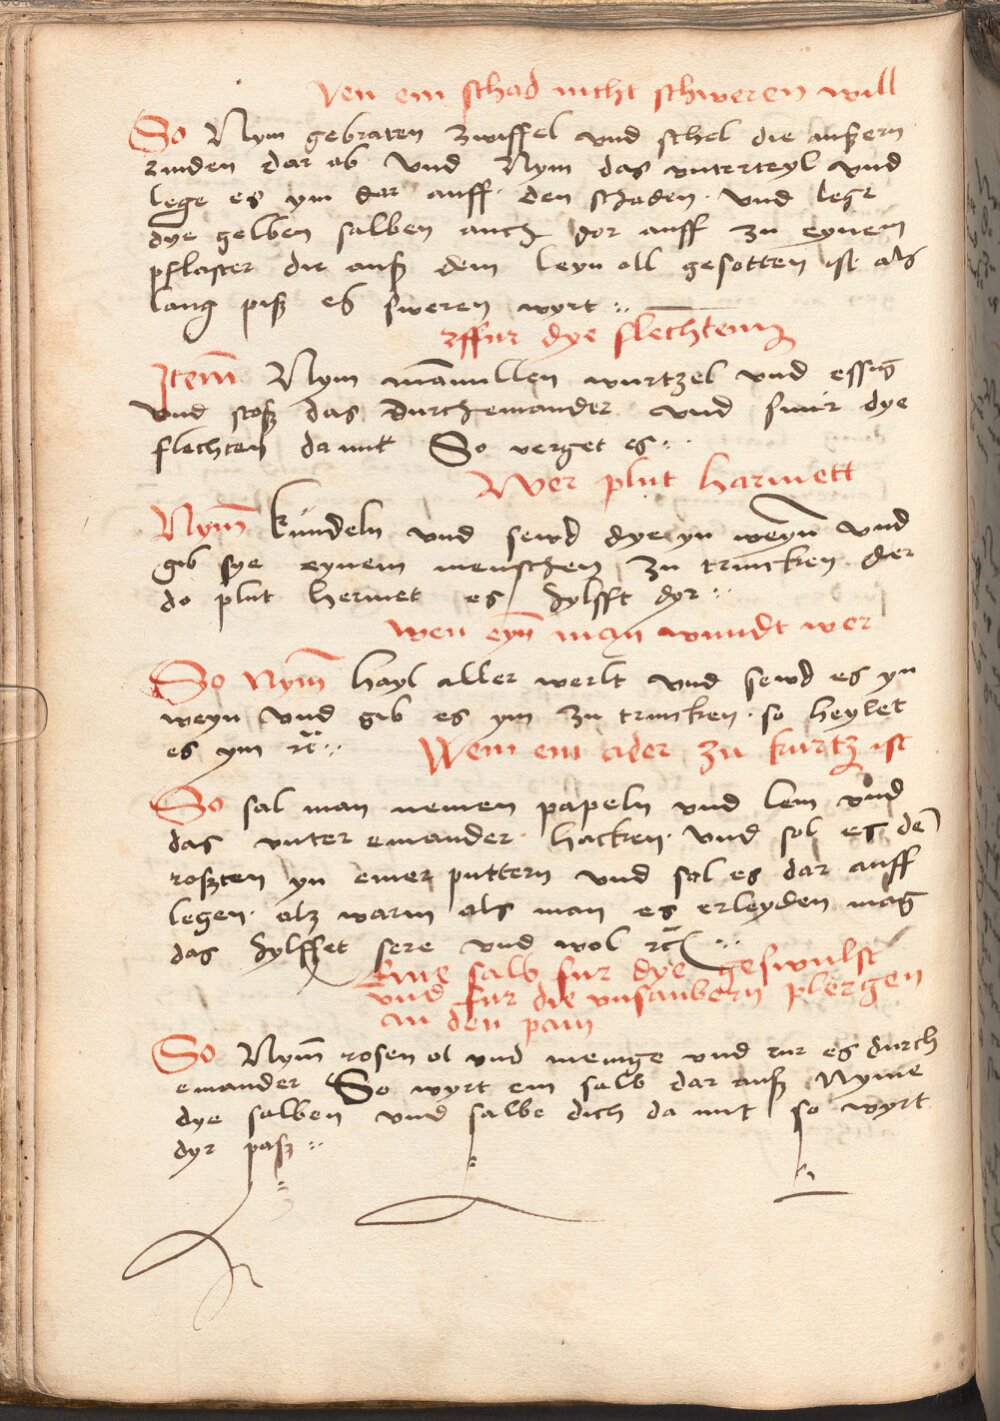 Wen ein schad nicht schweren will
So Nym gebraten zwiffel vnd schel die aussern
rinden dar ab vnd Nym das vnterteyl vnd
lege es ym dar auff den schaden vnd lege
dye gelben salben auch dor auff zu eynem
pflaster die auß dem leyn oll gesotten ist als
lang piß es sweren wyrt
ffur dye flechtenn
Item Nym mānullen wurtzel vnd essig
vnd stoß das durcheinander vnd smir dye
flechten da mit So verget es
Wer plut harnett
Nym kundeln vnd sewd dye yn weyn vnd
gib sye eynem menschen zu trincken der
do plut hernet es hylfft dyr
Wen eyn man wundt wer
So Nym hayl aller werlt vnd sewd es yn
weyn vnd gib es ym zu trincken so heylet
es ym rc̄ Wem ein ader zu kurtz ist
So sal man nemen papeln vnd lein vnd
das vnter einander hacken vnd sol es dē
roßten yn einer puttern vnd sal es dar auff
legen alz warm als man es erleyden mag
das hylffet sere vnd wol rc̄
Eine salb fur dye geswulst
vnd fur die vnsaubern plergen
an den pain
So Nym rosen ol vnd menige vnd rur es durch
einander So wyrt ein salb dar auß Nyme
dye salben vnd salbe dich da mit so wyrt
dyr paß